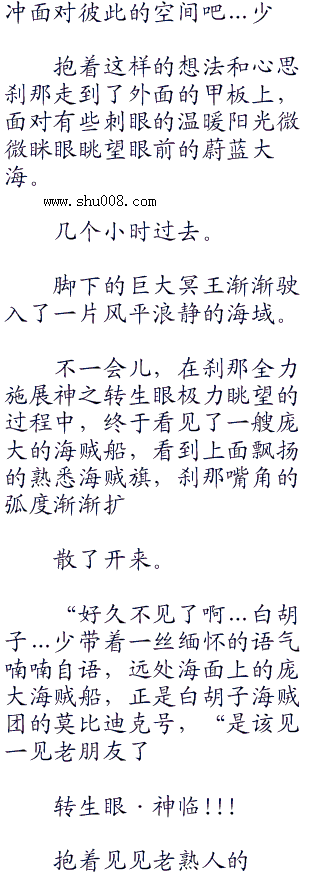 冲面对彼此的空间吧…少
抱着这样的想法和心思
刹那走到了外面的甲板上，
面对有些刺眼的温暖阳光微
微眯眼眺望眼前的蔚蓝大
海。
www.shu008.com
几个小时过去。
脚下的巨大冥王渐渐驶
入了一片风平浪静的海域。
不一会儿，在刹那全力
施展神之转生眼极力眺望的
过程中，终于看见了一艘庞
大的海贼船，看到上面飘扬
的熟悉海贼旗，刹那嘴角的
弧度渐渐扩
散了开来。
“好久不见了啊…白胡
子…少带着一丝缅怀的语气
喃喃自语，远处海面上的庞
大海贼船，正是白胡子海贼
团的莫比迪克号，“是该见
一见老朋友了
转生眼·神临!!!
抱着见见老熟人的